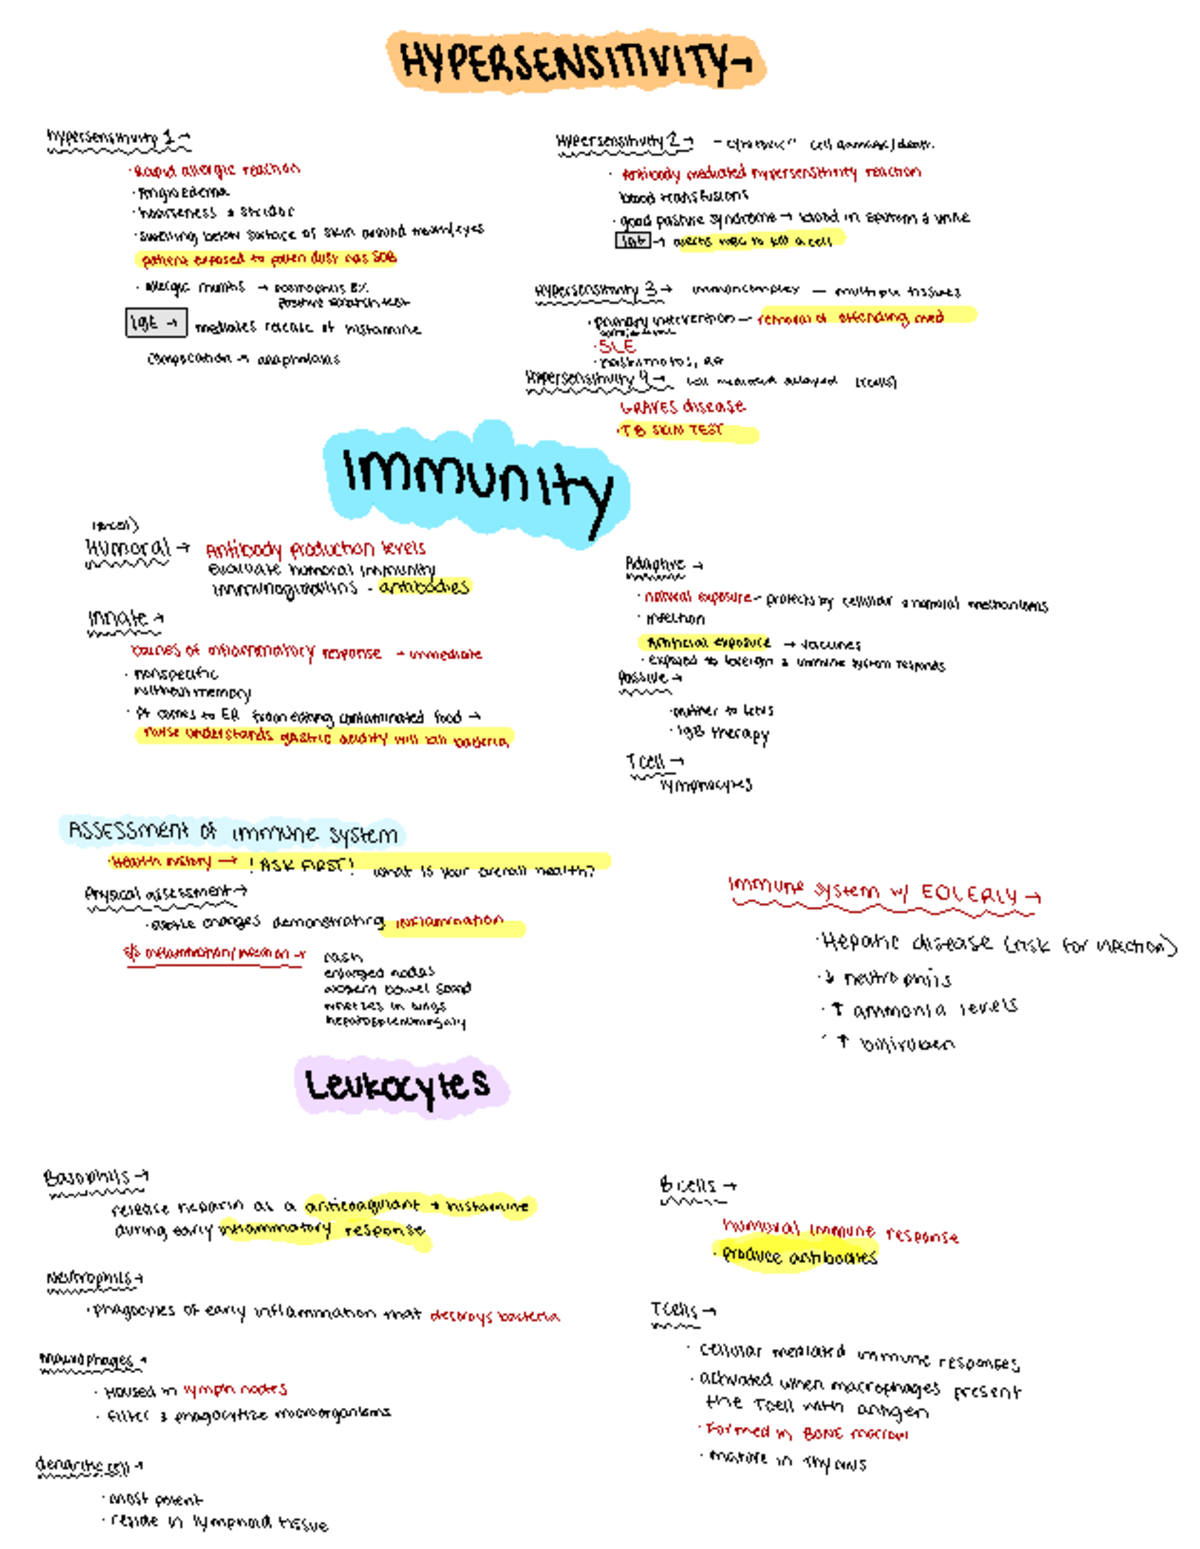 HYPERSENSITIVITY→
Hypersensitivity 1 →
• Rapid allergic reaction
• Angioedema
• hoarseness & stridor
• swelling below surface of skin around mouth/eyes
patient exposed to pollen dust has SOB
• allergic rhinitis → eosinophils 8%
positive scratch test
IgE → mediates release of histamine
complication →
Hypersensitivity 2 → cell damage/death
• Antibody mediated hypersensitivity reaction
blood transfusions
• good pasture syndrome → blood in sputum & urine
→ to kill a cell
Hypersensitivity 3 → — multiple tissues
• primary — removal of offending med
• SLE
• RA
Hypersensitivity 4 → cell mediated delayed
GRAVES disease
• TB SKIN TEST
Immunity
Humoral → Antibody production levels
evaluate humoral immunity
- antibodies
Innate →
of inflammatory response → immediate
• nonspecific
without memory
• Pt comes to ER from eating contaminated food →
nurse understands gastric acidity will kill bacteria
Adaptive →
• natural exposure - protects by cellular & humoral mechanisms
• infection
Artificial exposure → vaccines
• exposed to foreign & immune system responds
Passive →
• mother to fetus
therapy
T cell →
lymphocytes
ASSESSMENT OF immune system
• Health history → ! ASK FIRST! what is your overall health?
Physical assessment →
• subtle changes demonstrating inflammation
s/s inflammation/infection → rash
enlarged nodes
bowel sound
wheezes in lungs
Immune system w/ ELDERLY →
• Hepatic disease (risk for infection)
• ↓ neutrophils
• ↑ ammonia levels
• ↑ biliruben
Leukocytes
Basophils →
release heparin as a anticoagulant + histamine
during early inflammatory response
Neutrophils →
• phagocytes of early inflammation that destroys bacteria
Macrophages →
• Housed in lymph nodes
• Filter & phagocytize microorganisms
dendritic cell →
• most potent
• reside in lymphoid tissue
B cells →
humoral immune response
• produce antibodies
T cells →
• cellular mediated immune responses
• activated when macrophages present
the T cell with antigen
• Formed in BONE marrow
• mature in thymus